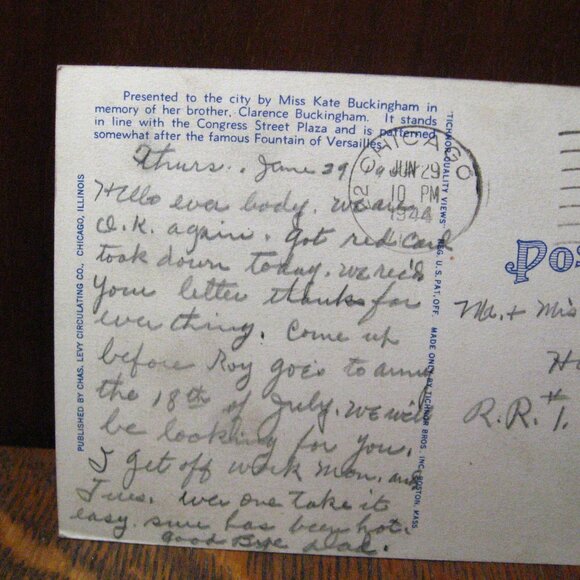 Presented to the city by Miss Kate Buckingham in
memory of her brother, Clarence Buckingham. It stands
in line with the Congress Street Plaza and is patterned
somewhat after the famous Fountain of Versailles.
Thurs., June 29
Hello ever body. we are
O.K. again. Got red card
took down today. we rec'd
your letter thanks for
ever thing. Come up
before Roy goes to army
the 18th of July. we will
be looking for you.
I get off work mon. and
Tues. ever one take it
easy. sure has been hot.
Good Bye Dad.
PUBLISHED BY CHAS. LEVY CIRCULATING CO., CHICAGO, ILLINOIS
"TICHNOR QUALITY VIEWS" REG. U.S. PAT. OFF. MADE ONLY BY TICHNOR BROS. INC., BOSTON, MASS.
CHICAGO
12
JUN 29
10 PM
1944
POS
Mr. + Mrs
R.R. #1.